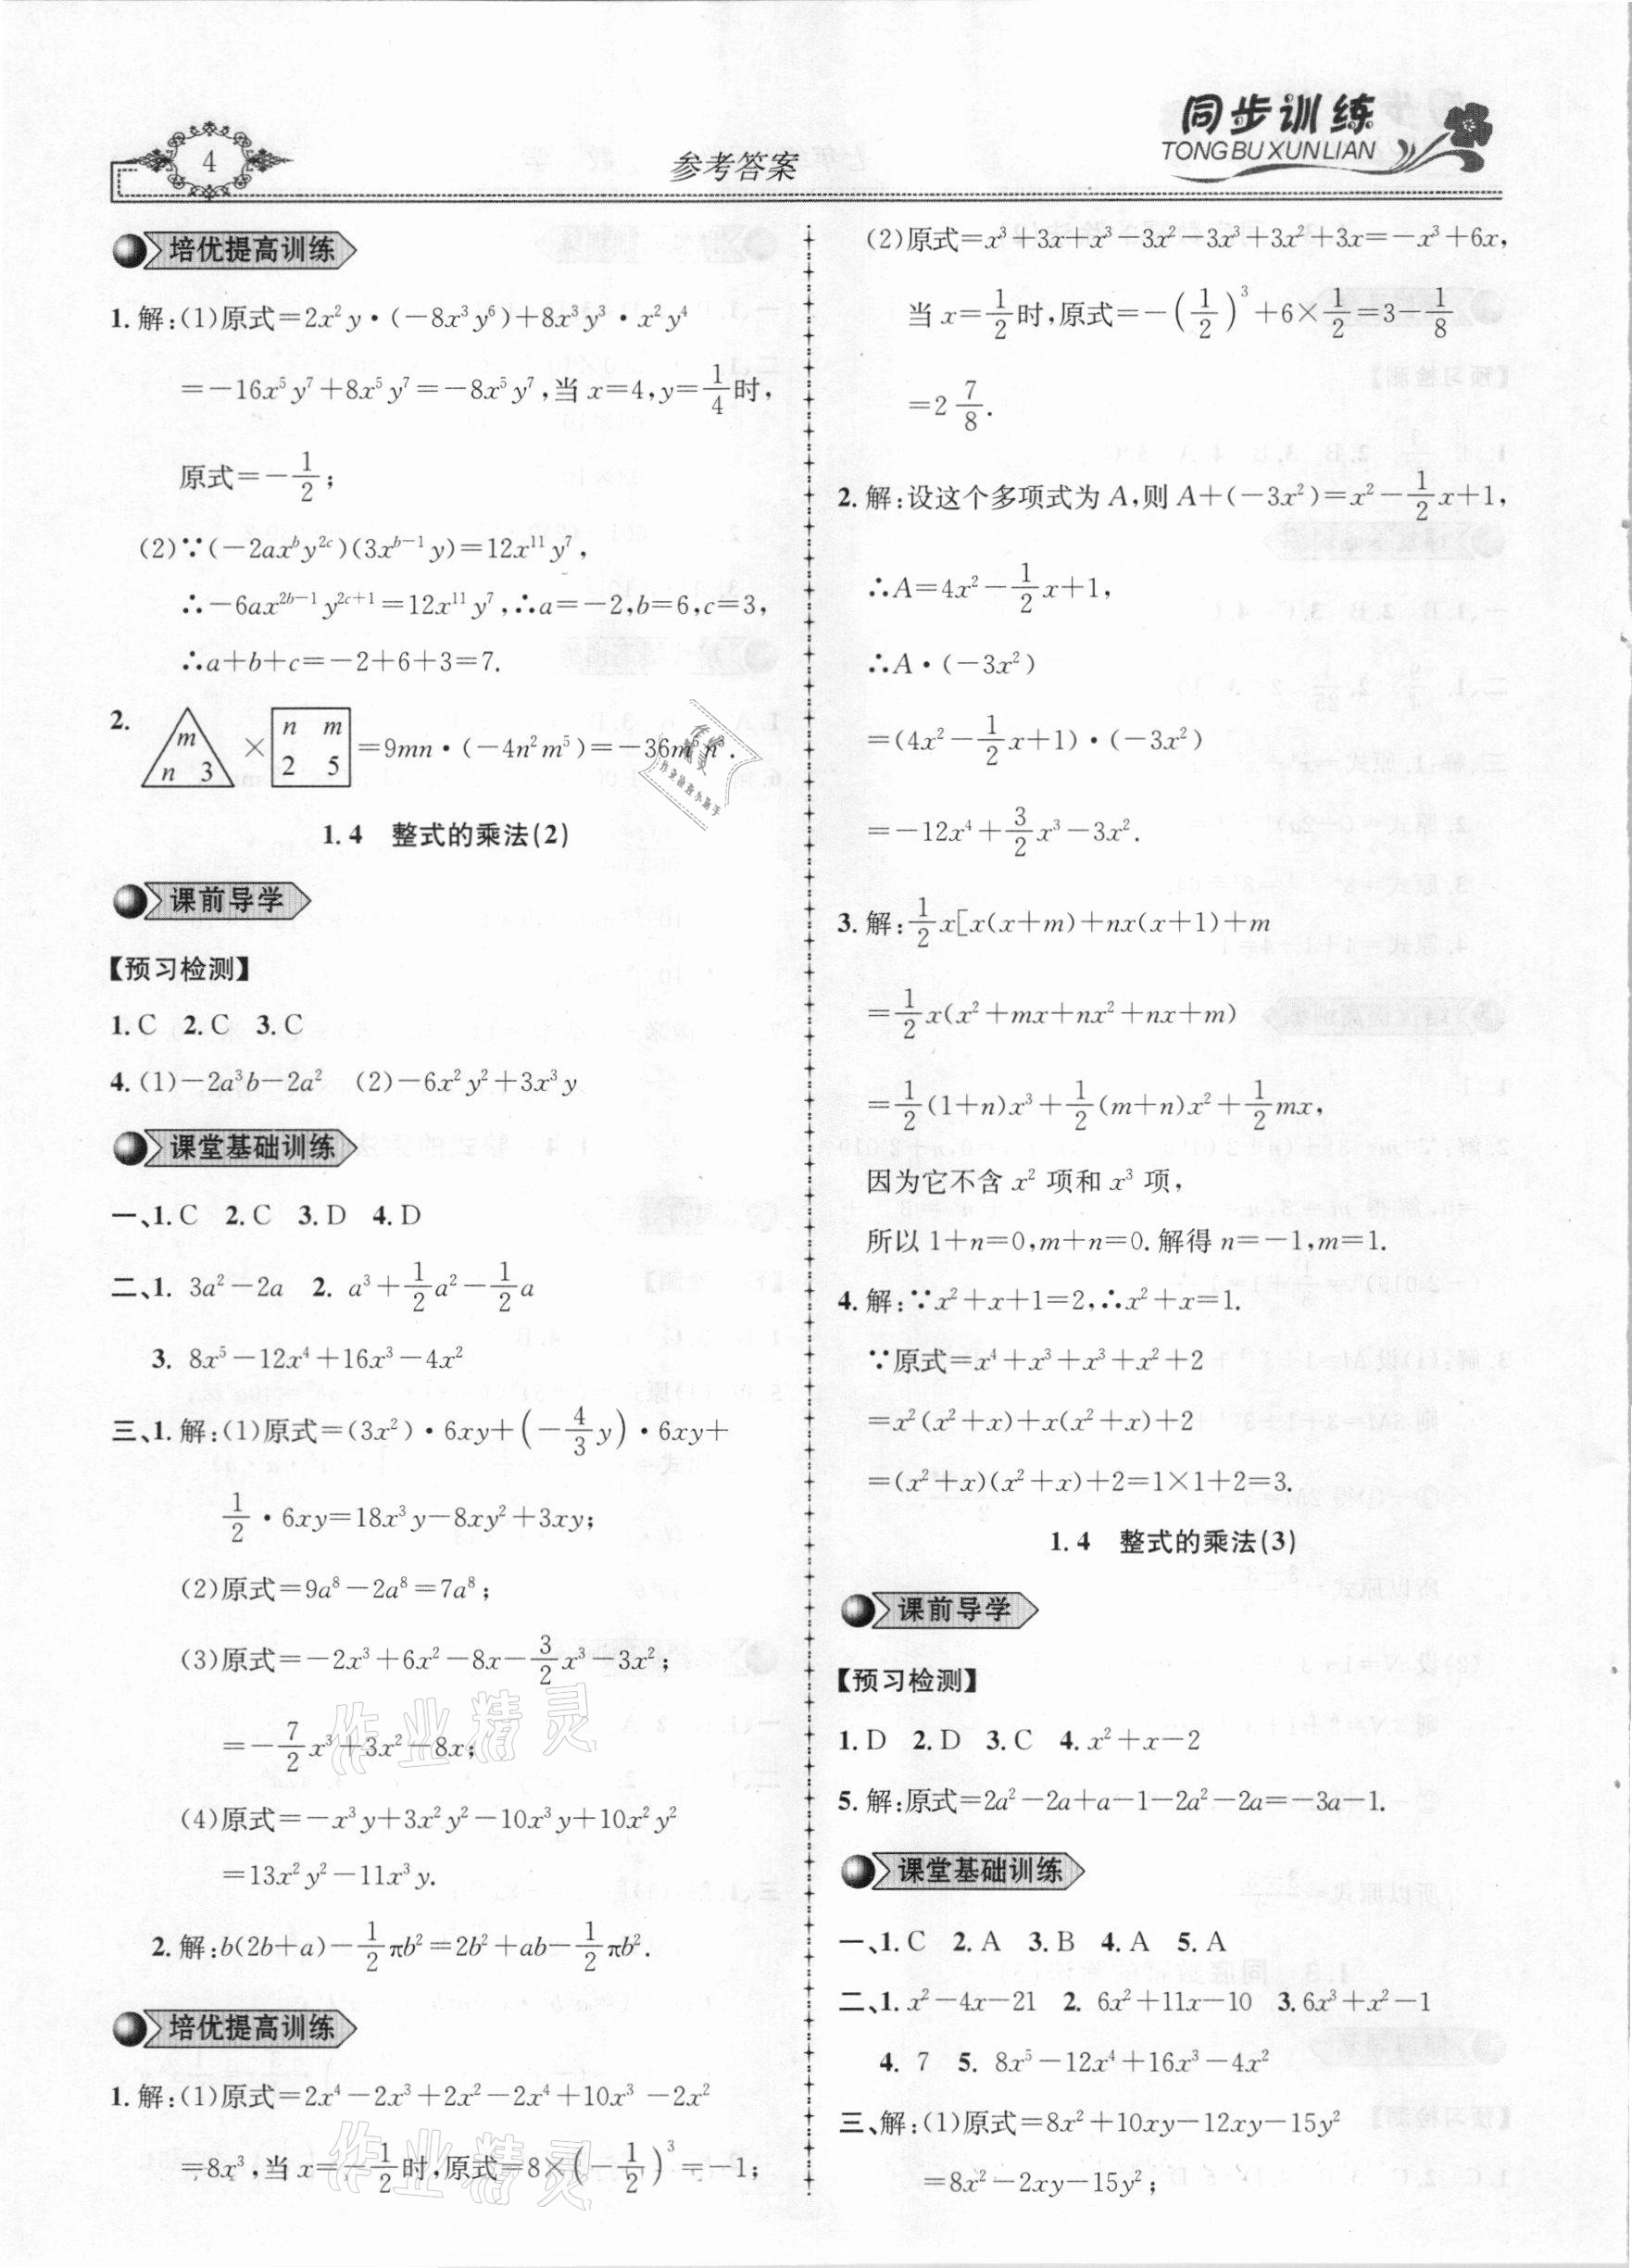 4
参考答案
同步训练
TONGBUXUNLIAN
培优提高训练
1.解:(1)原式=2x²y·(-8x³y⁶)+8x³y³·x²y⁴
=-16x⁵y⁷+8x⁵y⁷=-8x⁵y⁷,当 x=4,y=1/4时,
原式=-1/2;
(2)∵(-2axᵇy²ᶜ)(3xᵇ⁻¹y)=12x¹¹y⁷,
∴-6ax²ᵇ⁻¹y²ᶜ⁺¹=12x¹¹y⁷,∴a=-2,b=6,c=3,
∴a+b+c=-2+6+3=7.
2. m n 3 × n m 2 5 =9mn·(-4n²m⁵)=-36m⁶n³.
1.4 整式的乘法(2)
课前导学
【预习检测】
1.C 2.C 3.C
4.(1)-2a³b-2a² (2)-6x²y²+3x³y
课堂基础训练
一、1.C 2.C 3.D 4.D
二、1. 3a²-2a 2. a³+1/2a²-1/2a
3. 8x⁵-12x⁴+16x³-4x²
三、1.解:(1)原式=(3x²)·6xy+(-4/3y)·6xy+
1/2·6xy=18x³y-8xy²+3xy;
(2)原式=9a⁸-2a⁸=7a⁸;
(3)原式=-2x³+6x²-8x-3/2x³-3x²;
=-7/2x³+3x²-8x;
(4)原式=-x³y+3x²y²-10x³y+10x²y²
=13x²y²-11x³y.
2.解:b(2b+a)-1/2πb²=2b²+ab-1/2πb².
培优提高训练
1.解:(1)原式=2x⁴-2x³+2x²-2x⁴+10x³-2x²
=8x³,当 x=-1/2时,原式=8×(-1/2)³=-1;
(2)原式=x³+3x+x³-3x²-3x³+3x²+3x=-x³+6x,
当 x=1/2时,原式=-(1/2)³+6×1/2=3-1/8
=2 7/8.
2.解:设这个多项式为 A,则 A+(-3x²)=x²-1/2x+1,
∴A=4x²-1/2x+1,
∴A·(-3x²)
=(4x²-1/2x+1)·(-3x²)
=-12x⁴+3/2x³-3x².
3.解:1/2x[x(x+m)+nx(x+1)+m
=1/2x(x²+mx+nx²+nx+m)
=1/2(1+n)x³+1/2(m+n)x²+1/2mx,
因为它不含 x² 项和 x³ 项,
所以 1+n=0,m+n=0.解得 n=-1,m=1.
4.解:∵x²+x+1=2,∴x²+x=1.
∵原式=x⁴+x³+x³+x²+2
=x²(x²+x)+x(x²+x)+2
=(x²+x)(x²+x)+2=1×1+2=3.
1.4 整式的乘法(3)
课前导学
【预习检测】
1.D 2.D 3.C 4.x²+x-2
5.解:原式=2a²-2a+a-1-2a²-2a=-3a-1.
课堂基础训练
一、1.C 2.A 3.B 4.A 5.A
二、1. x²-4x-21 2. 6x²+11x-10 3.6x³+x²-1
4. 7 5. 8x⁵-12x⁴+16x³-4x²
三、解:(1)原式=8x²+10xy-12xy-15y²
=8x²-2xy-15y²;
作业精灵
作业精灵